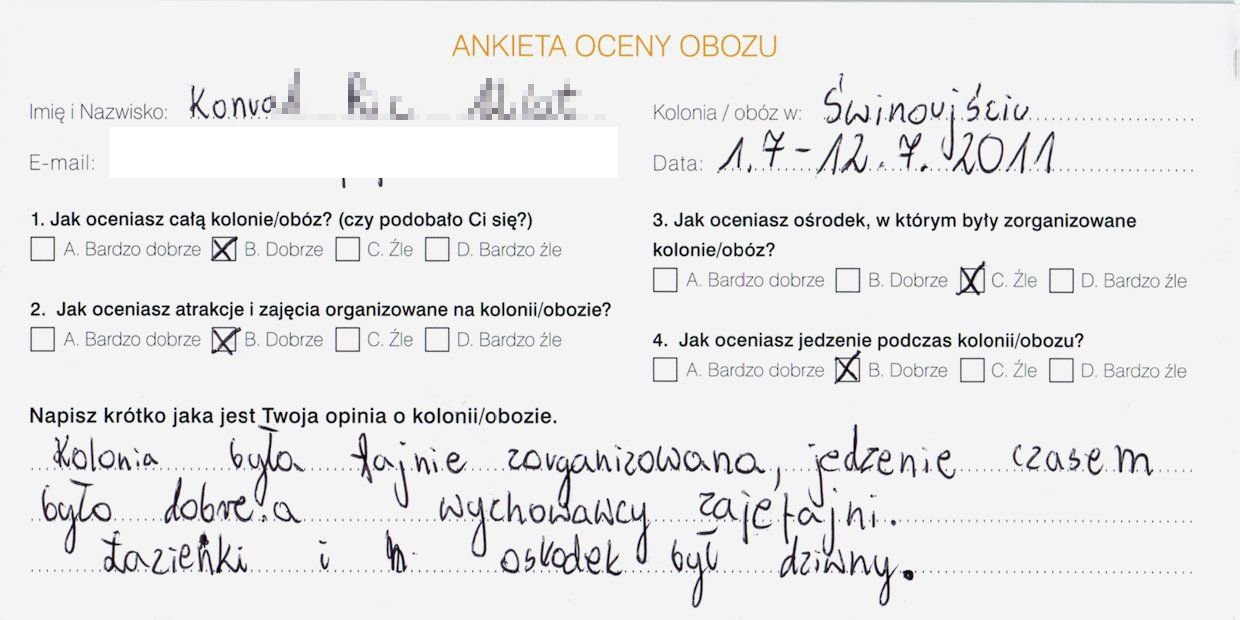 ANKIETA OCENY OBOZU
Imię i Nazwisko: Konrad
Kolonia / obóz w: Świnoujściu
E-mail:
Data: 1.7-12.7.2011
1. Jak oceniasz całą kolonie/obóz? (czy podobało Ci się?)
A. Bardzo dobrze B. Dobrze C. Źle D. Bardzo źle
2. Jak oceniasz atrakcje i zajęcia organizowane na kolonii/obozie?
A. Bardzo dobrze B. Dobrze C. Źle D. Bardzo źle
3. Jak oceniasz ośrodek, w którym były zorganizowane
kolonie/obóz?
A. Bardzo dobrze B. Dobrze C. Źle D. Bardzo źle
4. Jak oceniasz jedzenie podczas kolonii/obozu?
A. Bardzo dobrze B. Dobrze C. Źle D. Bardzo źle
Napisz krótko jaka jest Twoja opinia o kolonii/obozie.
Kolonia była fajnie zorganizowana, jedzenie czasem
było dobre.a wychowawcy zajefajni.
Łazieńki i oskodek był dziwny.